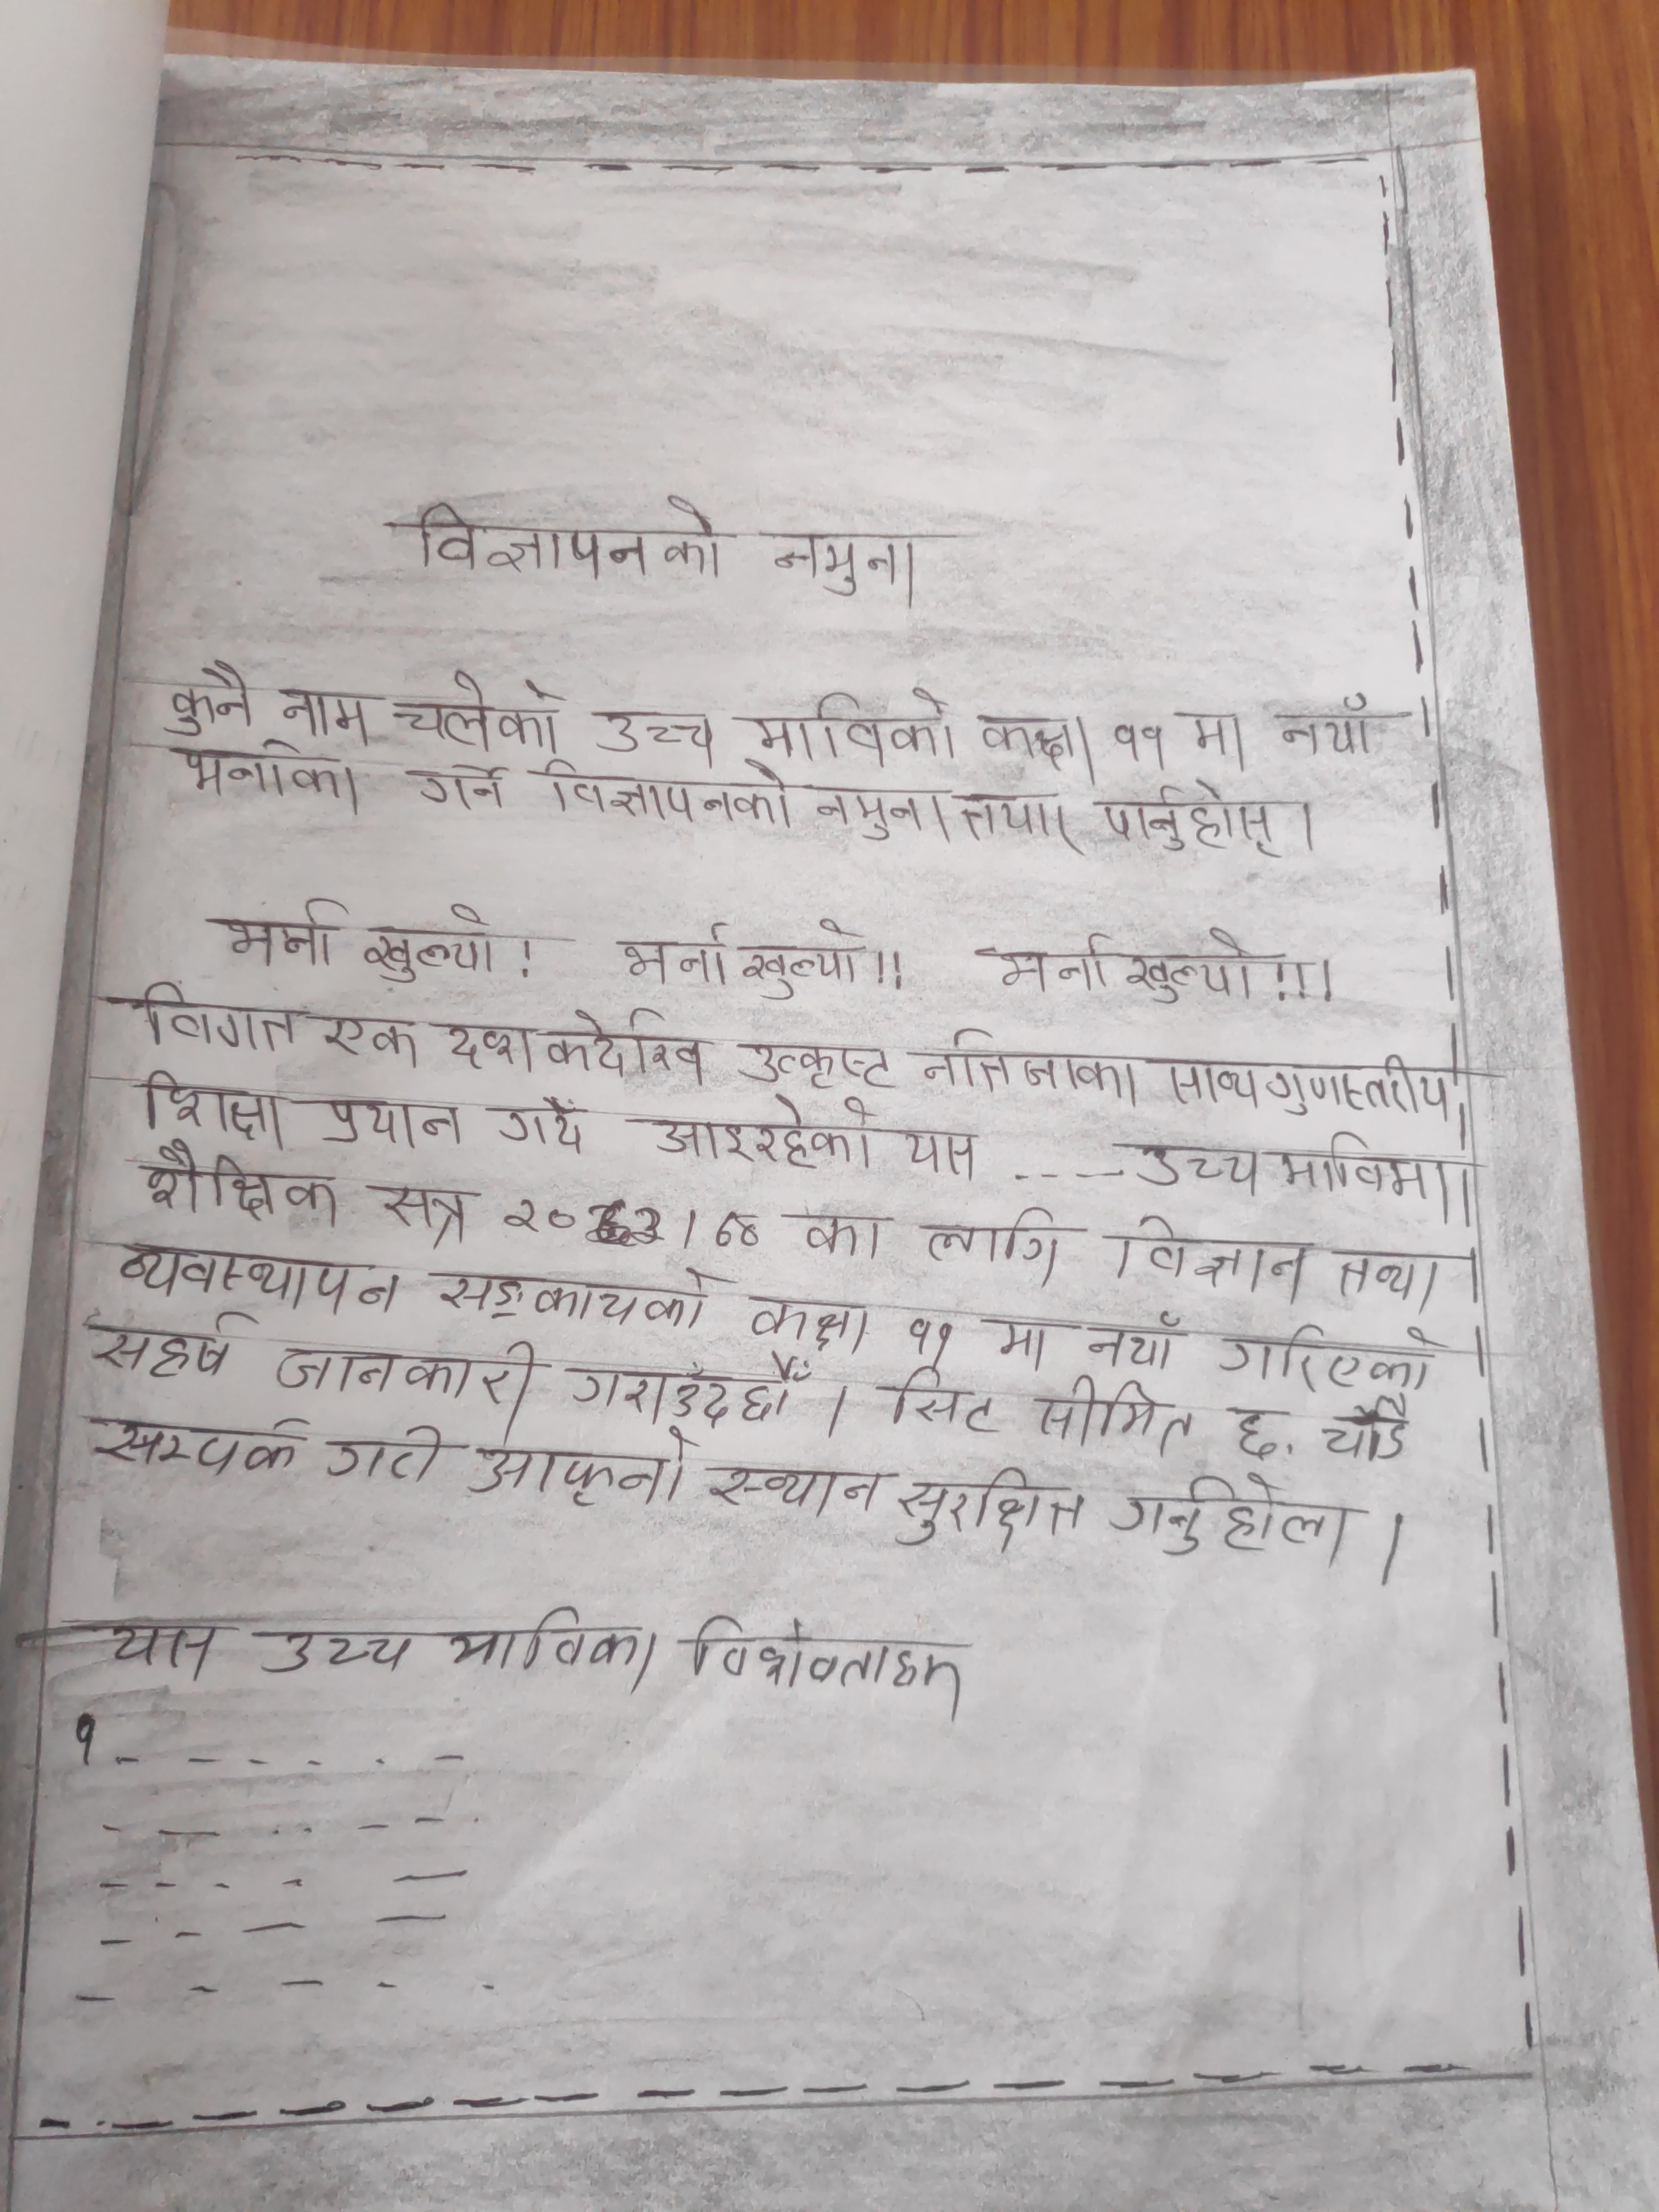 विज्ञापनको नमुना
कुनै नाम चलेको उच्च माविको कक्षा ११ मा नयाँ
भर्नाका गर्ने विज्ञापनको नमुना तयार पार्नुहोस् ।
भर्ना खुल्यो ! भर्ना खुल्यो !! भर्ना खुल्यो !!!
विगत एक दशकदेखि उत्कृस्ट नतिजाका साथ गुणस्तरीय
शिक्षा प्रदान गर्दै आइरहेको यस ---- उच्च माविमा
शैक्षिक सत्र का लागि विज्ञान तथा
व्यवस्थापन सङ्कायको कक्षा ११ मा नयाँ गरिएको
सहर्ष जानकारी गराउँदछौँ । सिट सीमित छ. चाँडै
सम्पर्क गरी आफ्नो स्थान सुरक्षित गर्नुहोला ।
यस उच्च माविका विशेषताहरू
१ - - - - - -